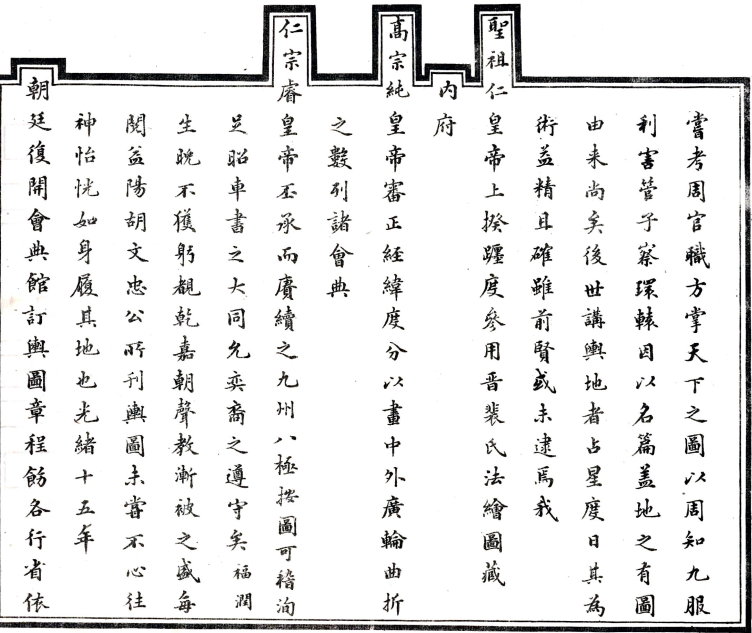 嘗考周官職方掌天下之圖以周知九服
利害管子察環轅因以名篇蓋地之有圖
由来尚矣後世講輿地者占星度日其為
術益精且確雖前賢或未逮焉我
聖祖仁皇帝上揆躔度參用晋裴氏法繪圖藏
内府
高宗純皇帝審正経緯度分以畫中外廣輪曲折
之數列諸會典
仁宗睿皇帝丕承而賡續之九州八極按圖可稽洵
足昭車書之大同允奕裔之遵守矣福潤
生晚不獲躬覩乾嘉朝聲教漸被之盛每
閱益陽胡文忠公所刊輿圖未嘗不心往
神怡恍如身履其地也光緒十五年
朝廷復開會典館訂輿圖章程飭各行省依